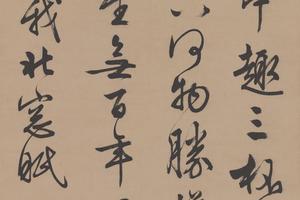 中趣三極
何物勝
生無百年
我北窓眠